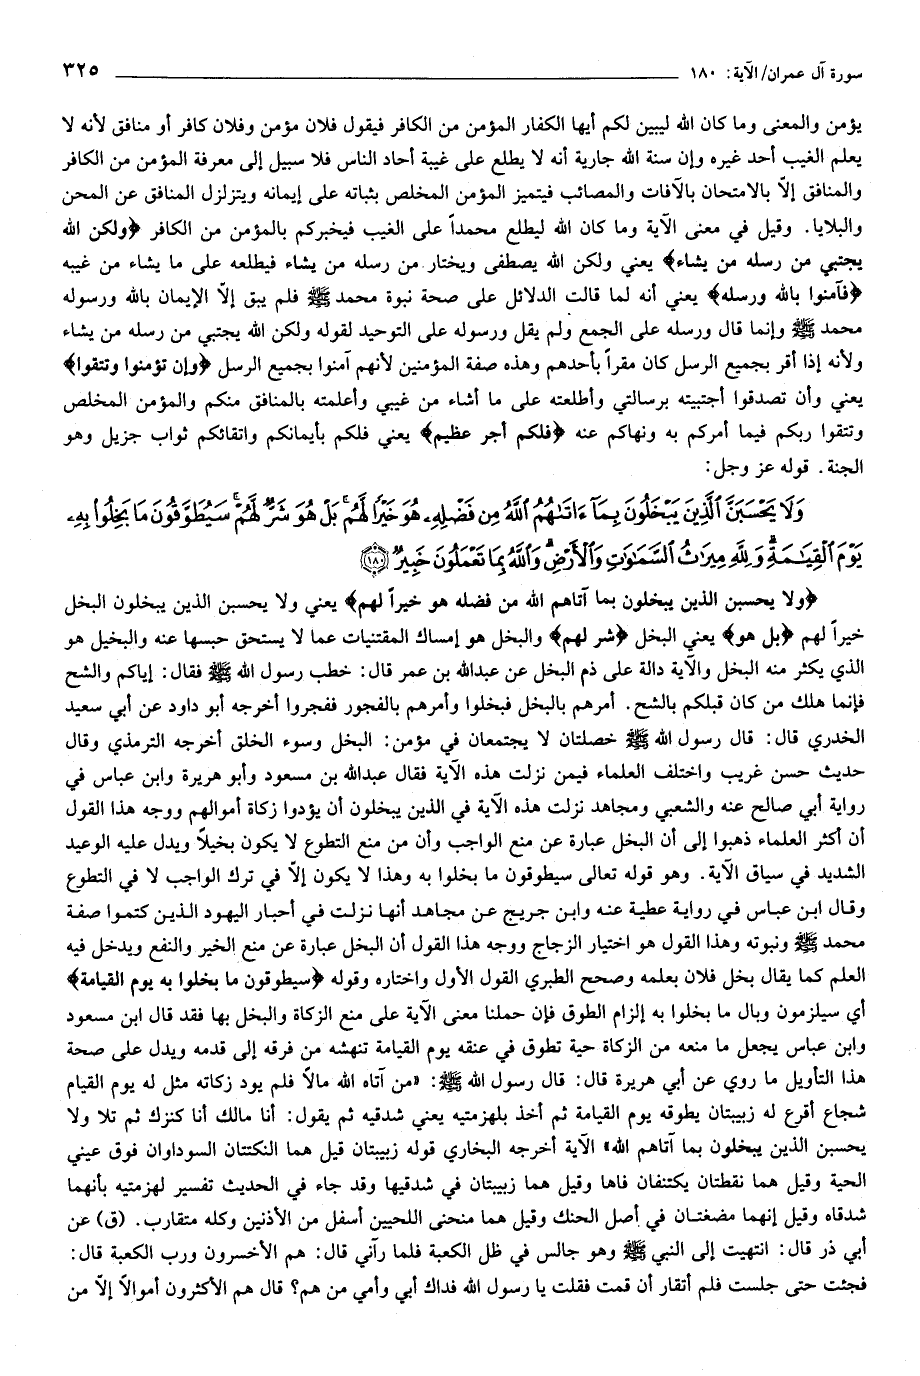 سورة آل عمران/ الآية: ١٨٠ ٣٢٥
يؤمن والمعنى وما كان الله ليبين لكم أيها الكفار المؤمن من الكافر فيقول فلان مؤمن وفلان كافر أو منافق لأنه لا
يعلم الغيب أحد غيره وإن سنة الله جارية أنه لا يطلع على غيبة أحاد الناس فلا سبيل إلى معرفة المؤمن من الكافر
والمنافق إلّا بالامتحان بالآفات والمصائب فيتميز المؤمن المخلص بثباته على إيمانه ويتزلزل المنافق عن المحن
والبلايا. وقيل في معنى الآية وما كان الله ليطلع محمداً على الغيب فيخبركم بالمؤمن من الكافر ﴿ولكن الله
يجتبي من رسله من يشاء﴾ يعني ولكن الله يصطفى ويختار من رسله من يشاء فيطلعه على ما يشاء من غيبه
﴿فآمنوا بالله ورسله﴾ يعني أنه لما قالت الدلائل على صحة نبوة محمد ﷺ فلم يبق إلّا الإيمان بالله ورسوله
محمد ﷺ وإنما قال ورسله على الجمع ولم يقل ورسوله على التوحيد لقوله ولكن الله يجتبي من رسله من يشاء
ولأنه إذا أقر بجميع الرسل كان مقراً بأحدهم وهذه صفة المؤمنين لأنهم آمنوا بجميع الرسل ﴿وإن تؤمنوا وتتقوا﴾
يعني وأن تصدقوا أجتبيته برسالتي وأطلعته على ما أشاء من غيبي وأعلمته بالمنافق منكم والمؤمن المخلص
وتتقوا ربكم فيما أمركم به ونهاكم عنه ﴿فلكم أجر عظيم﴾ يعني فلكم بأيمانكم واتقائكم ثواب جزيل وهو
الجنة. قوله عز وجل:
وَلَا يَحْسَبَنَّ ٱلَّذِينَ يَبْخَلُونَ بِمَآ ءَاتَىٰهُمُ ٱللَّهُ مِن فَضْلِهِۦ هُوَ خَيْرًا لَّهُم ۖ بَلْ هُوَ شَرٌّ لَّهُمْ ۖ سَيُطَوَّقُونَ مَا بَخِلُوا۟ بِهِۦ
يَوْمَ ٱلْقِيَـٰمَةِ ۗ وَلِلَّهِ مِيرَٰثُ ٱلسَّمَـٰوَٰتِ وَٱلْأَرْضِ ۗ وَٱللَّهُ بِمَا تَعْمَلُونَ خَبِيرٌ ١٨٠
﴿ولا يحسبن الذين يبخلون بما آتاهم الله من فضله هو خيراً لهم﴾ يعني ولا يحسبن الذين يبخلون البخل
خيراً لهم ﴿بل هو﴾ يعني البخل ﴿شر لهم﴾ والبخل هو إمساك المقتنيات عما لا يستحق حبسها عنه والبخيل هو
الذي يكثر منه البخل والآية دالة على ذم البخل عن عبدالله بن عمر قال: خطب رسول الله ﷺ فقال: إياكم والشح
فإنما هلك من كان قبلكم بالشح. أمرهم بالبخل فبخلوا وأمرهم بالفجور ففجروا أخرجه أبو داود عن أبي سعيد
الخدري قال: قال رسول الله ﷺ خصلتان لا يجتمعان في مؤمن: البخل وسوء الخلق أخرجه الترمذي وقال
حديث حسن غريب واختلف العلماء فيمن نزلت هذه الآية فقال عبدالله بن مسعود وأبو هريرة وابن عباس في
رواية أبي صالح عنه والشعبي ومجاهد نزلت هذه الآية في الذين يبخلون أن يؤدوا زكاة أموالهم ووجه هذا القول
أن أكثر العلماء ذهبوا إلى أن البخل عبارة عن منع الواجب وأن من منع التطوع لا يكون بخيلاً ويدل عليه الوعيد
الشديد في سياق الآية. وهو قوله تعالى سيطوقون ما بخلوا به وهذا لا يكون إلّا في ترك الواجب لا في التطوع
وقال ابن عباس في رواية عطية عنه وابن جريج عن مجاهد أنها نزلت في أحبار اليهود الذين كتموا صفة
محمد ﷺ ونبوته وهذا القول هو اختيار الزجاج ووجه هذا القول أن البخل عبارة عن منع الخير والنفع ويدخل فيه
العلم كما يقال بخل فلان بعلمه وصحح الطبري القول الأول واختاره وقوله ﴿سيطوقون ما بخلوا به يوم القيامة﴾
أي سيلزمون وبال ما بخلوا به إلزام الطوق فإن حملنا معنى الآية على منع الزكاة والبخل بها فقد قال ابن مسعود
وابن عباس يجعل ما منعه من الزكاة حية تطوق في عنقه يوم القيامة تنهشه من فرقه إلى قدمه ويدل على صحة
هذا التأويل ما روي عن أبي هريرة قال: قال رسول الله ﷺ: «من آتاه الله مالاً فلم يود زكاته مثل له يوم القيام
شجاع أقرع له زبيبتان يطوقه يوم القيامة ثم أخذ بلهزمتيه يعني شدقيه ثم يقول: أنا مالك أنا كنزك ثم تلا ولا
يحسبن الذين يبخلون بما آتاهم الله» الآية أخرجه البخاري قوله زبيبتان قيل هما النكتتان السوداوان فوق عيني
الحية وقيل هما نقطتان يكتنفان فاها وقيل هما زبيبتان في شدقيها وقد جاء في الحديث تفسير لهزمتيه بأنهما
شدقاه وقيل إنهما مضغتان في أصل الحنك وقيل هما منحنى اللحيين أسفل من الأذنين وكله متقارب. (ق) عن
أبي ذر قال: انتهيت إلى النبي ﷺ وهو جالس في ظل الكعبة فلما رآني قال: هم الأخسرون ورب الكعبة قال:
فجئت حتى جلست فلم أتقار أن قمت فقلت يا رسول الله فداك أبي وأمي من هم؟ قال هم الأكثرون أموالاً إلاّ من